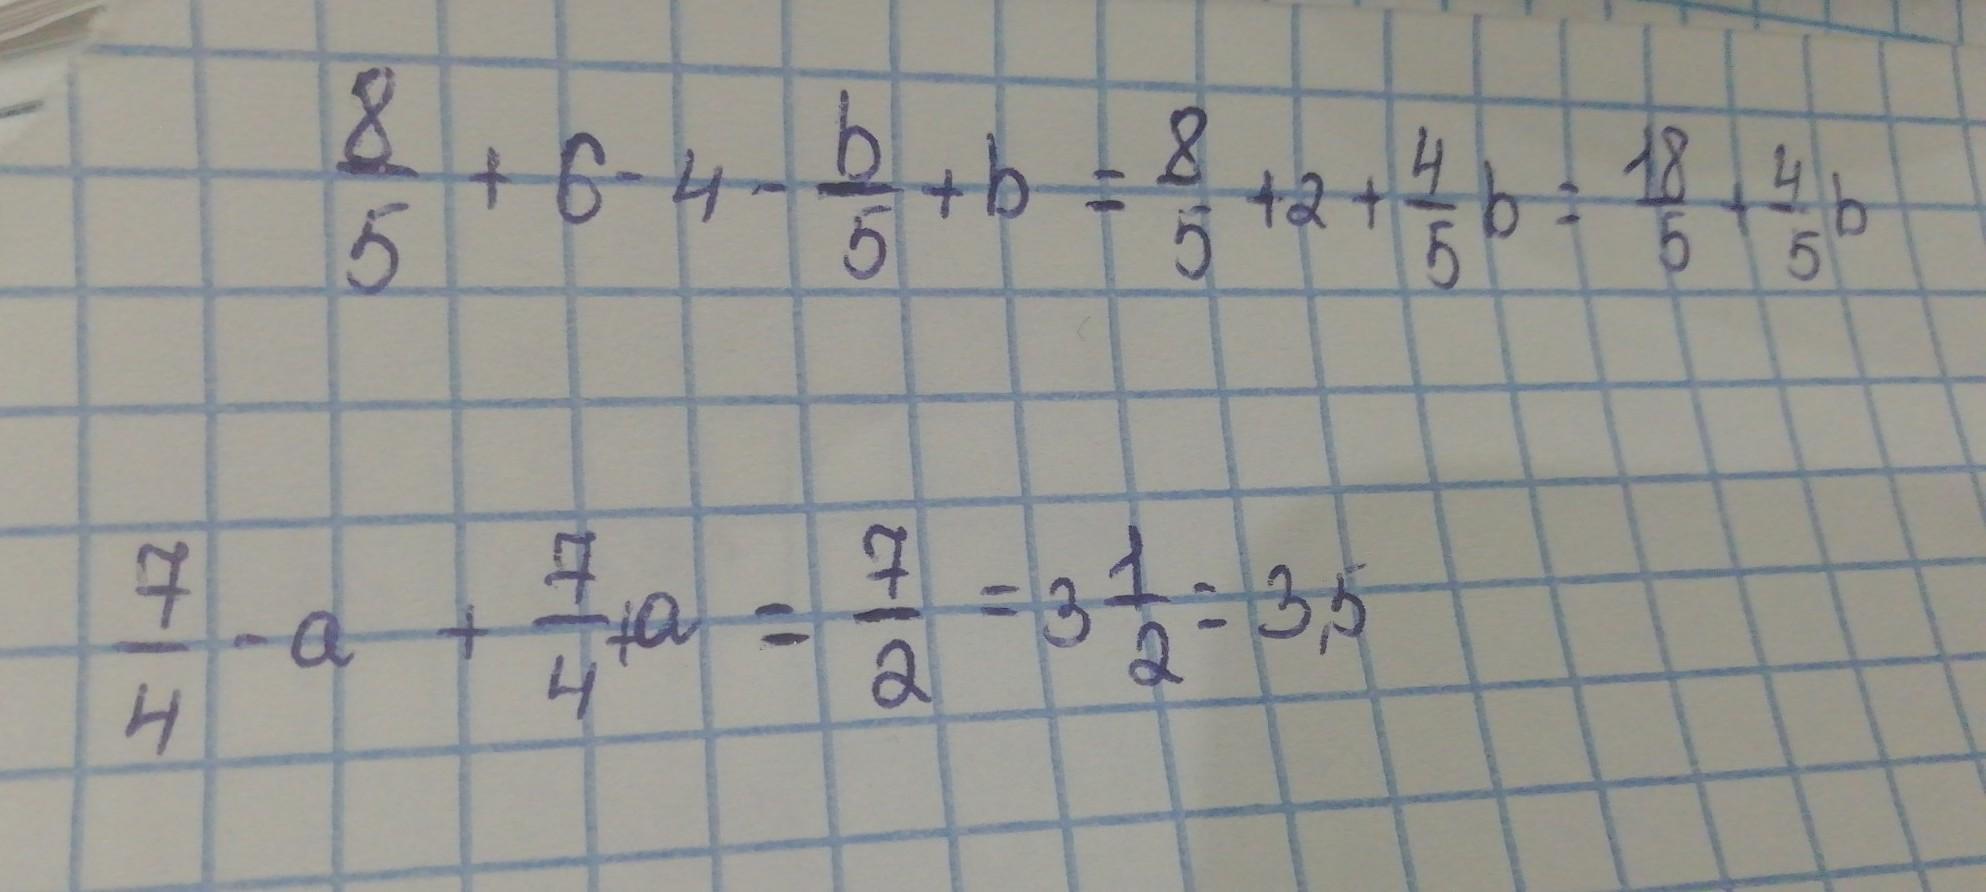 8/5 + 6 - 4 - b/5 + b = 8/5 + 2 + 4/5 b = 18/5 + 4/5 b
7/4 - a + 7/4 + a = 7/2 = 3 1/2 = 3,5